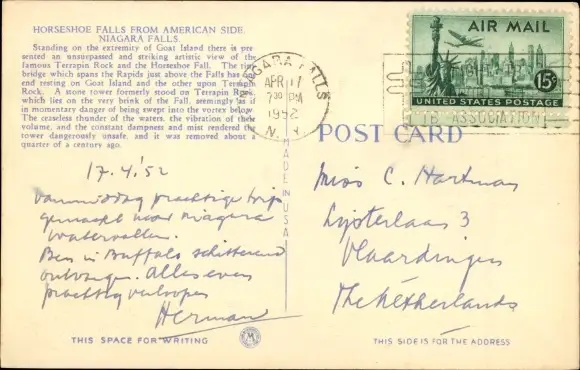 HORSESHOE FALLS FROM AMERICAN SIDE.
NIAGARA FALLS.
Standing on the extremity of Goat Island there is pre-
sented an unsurpassed and striking artistic view of the
famous Terrapin Rock and the Horseshoe Fall. The
bridge which spans the Rapids just above the Falls has
end resting on Goat Island and the other upon Terrapin
Rock. A stone tower formerly stood on Terrapin Rock
which lies on the very brink of the Fall, seemingly as if
in momentary danger of being swept into the vortex below.
The ceaseless thunder of the waters, the vibration of their
volume, and the constant dampness and mist rendered the
tower dangerously unsafe, and it was removed about a
quarter of a century ago.
NIAGARA FALLS
APR 17
7 30 PM
1952
N.Y.
AIR MAIL
15¢
UNITED STATES POSTAGE
TB ASSOCIATION
POST CARD
MADE IN USA
17.4.'52
vanmiddag prachtige trip
gemaakt naar Niagara
watervallen.
Ben in Buffalo schitterend
ontvangen. Alles even
prachtig verlopen
Herman
Miss C. Hartman
Lijsterlaan 3
Vlaardingen
The Netherlands
THIS SPACE FOR WRITING
THIS SIDE IS FOR THE ADDRESS